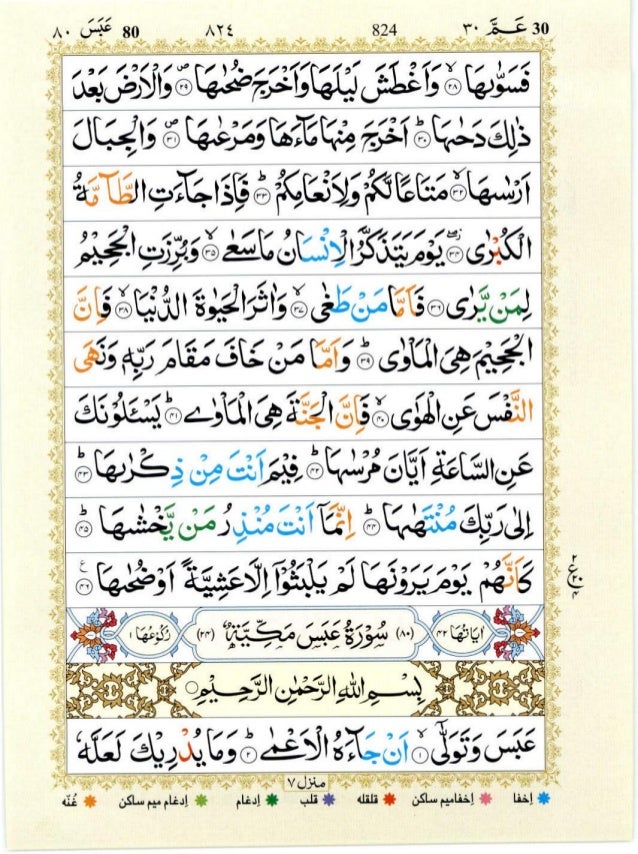 عَبَسَ ٨٠ 80 ٨٢٤ 824 عَـمَّ ٣٠ 30
فَسَوّٰىهَا ۙ‏﴿۲۸﴾ وَاَغْطَشَ لَيْلَهَا وَاَخْرَجَ ضُحٰىهَا ۪‏﴿۲۹﴾ وَالْاَرْضَ بَعْدَ
ذٰلِكَ دَحٰىهَا ؕ‏﴿۳۰﴾ اَخْرَجَ مِنْهَا مَآءَهَا وَمَرْعٰىهَا ۪‏﴿۳۱﴾ وَالْجِبَالَ
اَرْسٰىهَا ۙ‏﴿۳۲﴾ مَتَاعًا لَّكُمْ وَلِاَنْعَامِكُمْ ؕ‏﴿۳۳﴾ فَاِذَا جَآءَتِ الطَّآمَّةُ
الْكُبْرٰى ۖ‏﴿۳۴﴾ يَوْمَ يَتَذَكَّرُ الْاِنْسَانُ مَا سَعٰى ۙ‏﴿۳۵﴾ وَبُرِّزَتِ الْجَحِيْمُ
لِمَنْ يَّرٰى ‏﴿۳۶﴾ فَاَمَّا مَنْ طَغٰى ۙ‏﴿۳۷﴾ وَاٰثَرَ الْحَيٰوةَ الدُّنْيَا ۙ‏﴿۳۸﴾ فَاِنَّ
الْجَحِيْمَ هِىَ الْمَاْوٰى ؕ‏﴿۳۹﴾ وَاَمَّا مَنْ خَافَ مَقَامَ رَبِّهٖ وَنَهَى
النَّفْسَ عَنِ الْهَوٰى ۙ‏﴿۴۰﴾ فَاِنَّ الْجَنَّةَ هِىَ الْمَاْوٰى ؕ‏﴿۴۱﴾ يَسْـَٔلُوْنَكَ
عَنِ السَّاعَةِ اَيَّانَ مُرْسٰىهَا ؕ‏﴿۴۲﴾ فِيْمَ اَنْتَ مِنْ ذِكْرٰىهَا ؕ‏﴿۴۳﴾
اِلٰى رَبِّكَ مُنْتَهٰىهَا ؕ‏﴿۴۴﴾ اِنَّمَآ اَنْتَ مُنْذِرُ مَنْ يَّخْشٰىهَا ؕ‏﴿۴۵﴾
كَاَنَّهُمْ يَوْمَ يَرَوْنَهَا لَمْ يَلْبَثُوْٓا اِلَّا عَشِيَّةً اَوْ ضُحٰىهَا ‏﴿۴۶﴾
۲ ع ۲۰ ۴
اٰيَاتُهَا ۴۲ (۸۰) سُوْرَةُ عَبَسَ مَكِّيَّةٌ (۲۴) رُكُوْعُهَا ۱
بِسْمِ اللّٰهِ الرَّحْمٰنِ الرَّحِيْمِ
عَبَسَ وَتَوَلّٰٓى ۙ‏﴿۱﴾ اَنْ جَآءَهُ الْاَعْمٰى ؕ‏﴿۲﴾ وَمَا يُدْرِيْكَ لَعَلَّهٗ
منزل ۷
اِخفا اِخفامیم ساکن قلقله قلب اِدغام اِدغام میم ساکن غُنّه